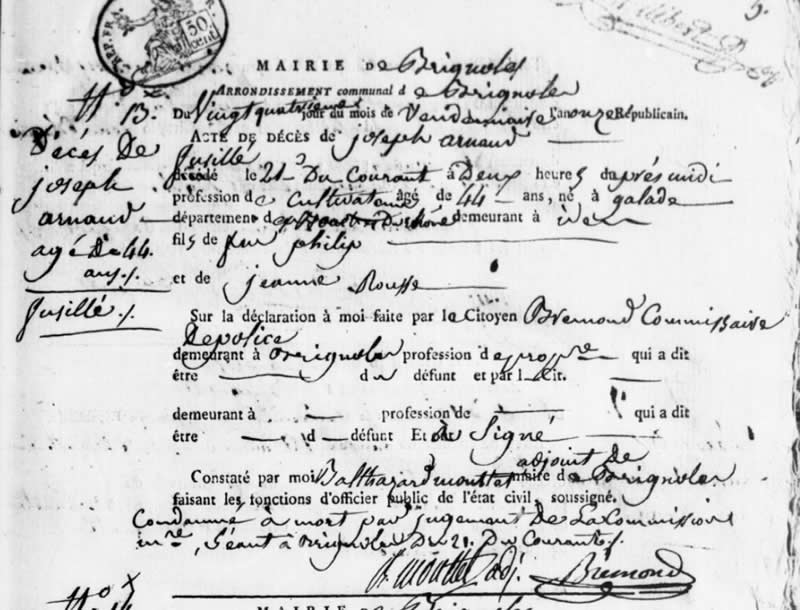 REP. FRA.
50
cent
5.
MAIRIE DE Brignoles
ARRONDISSEMENT communal d e Brignoles
N.o 13.
Du Vingt quatrieme jour du mois de Vendemiaire l'an onze Républicain.
ACTE DE DÉCÈS de joseph arnaud
fusillé
décédé le 21 Du Courant à Deux heures du après midi
profession de Cultivateur âgé de 44 ans, né à galade
département des Bouches Du Rhône demeurant à idem
fils de feu philip
et de jeanne Rousse
Décés De
joseph
arnaud
agé De 44.
ans ./.
fusillé ./.
Sur la déclaration à moi faite par le Citoyen Bremond Commissaire
De police
demeurant à Brignoles profession de propre qui a dit
être d u défunt et par l e cit.
demeurant à profession de qui a dit
être d défunt Et ont Signé
adjoint de
Constaté par moi Balthazard mouttet maire de Brignoles
faisant les fonctions d'officier public de l'état civil, soussigné.
Condamné à mort par jugement De La Commission
mre, Séant à Brignoles Du 21. Du Courant ./.
mouttet adj. Brémond
N.o
MAIRIE DE Brignoles